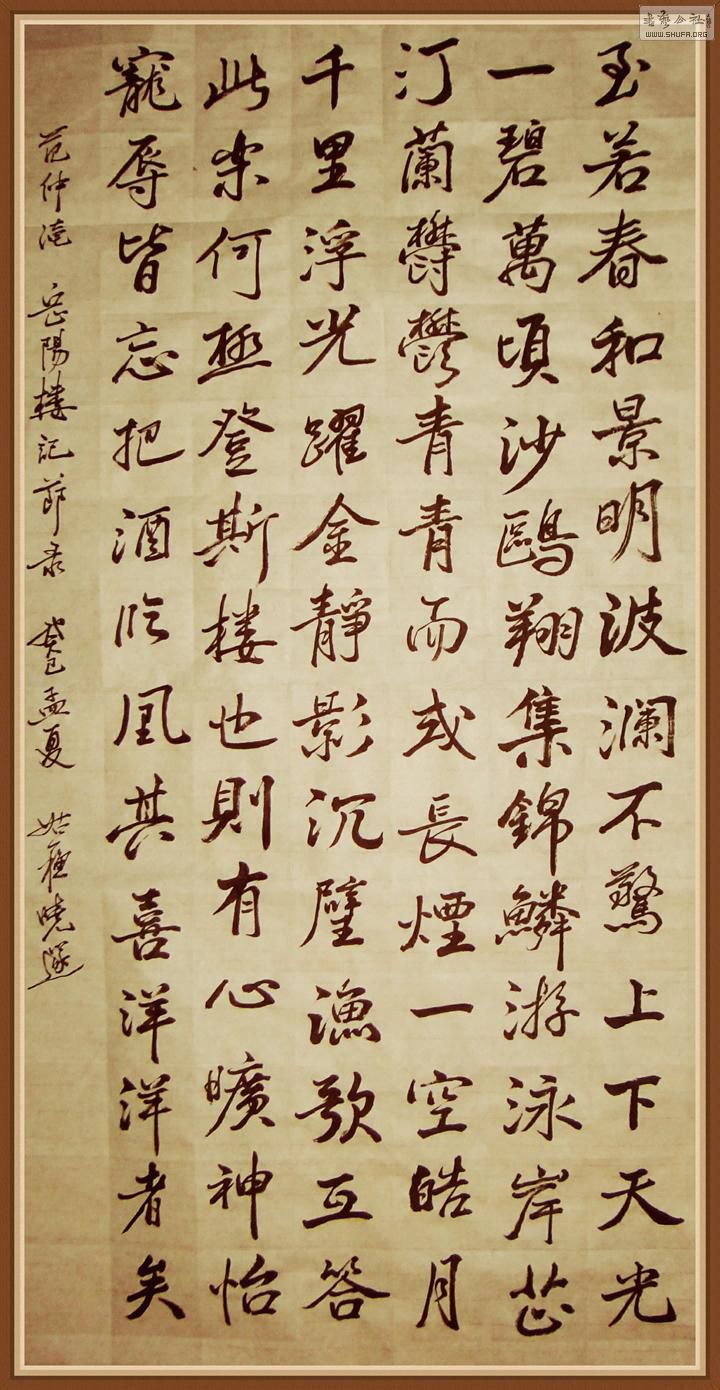 至若春和景明波澜不驚上下天光
一碧萬頃沙鷗翔集錦鱗游泳岸芷
汀蘭鬱鬱青青而或長煙一空皓月
千里浮光躍金靜影沉璧漁歌互答
此樂何極登斯楼也則有心曠神怡
寵辱皆忘把酒临風其喜洋洋者矣
范仲淹 岳陽楼記節录 癸巳孟夏 姑 曉
書藝公社
WWW.SHUFA.ORG